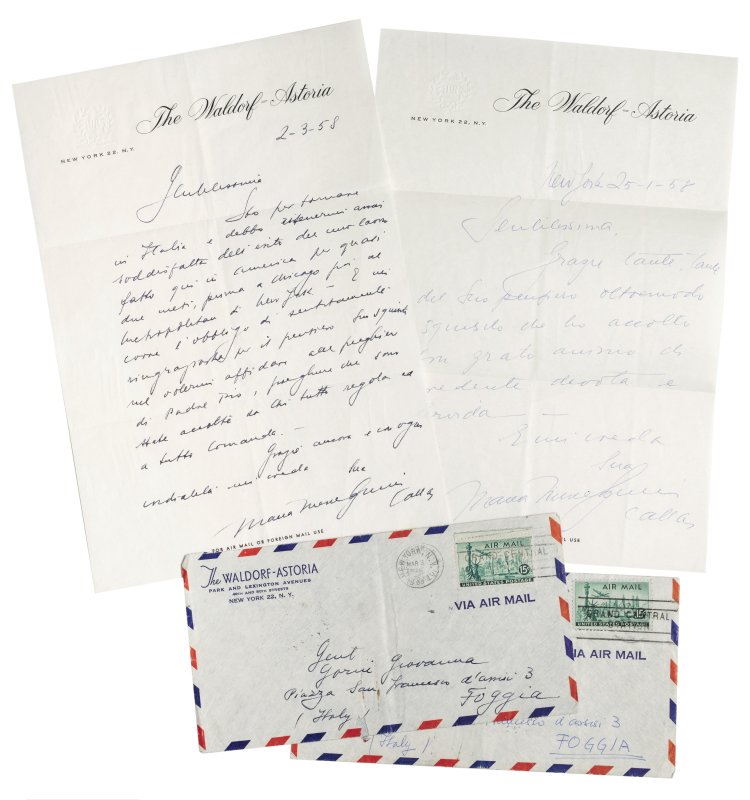 The Waldorf-Astoria
NEW YORK 22, N.Y.
2-3-58
Gentilissima
Sto per tornare
in Italia e debbo ritenermi assai
soddisfatta dell'esito del mio lavoro
fatto qui in america per quasi
due mesi, prima a chicago poi al
Metropolitan di New York - E mi
corre l'obbligo di sentitamente
ringraziarla per il pensiero Suo squisito
nel volermi affidare alle preghiere
di Padre Pio, preghiere che sono
state accolte da Chi tutto regola ed
a tutto comanda. -
Grazie ancora e con ogni
cordialità mi creda Sua
Maria Meneghini
Callas
FOR AIR MAIL OR FOREIGN MAIL USE
The Waldorf-Astoria
NEW YORK 22, N.Y.
New York 25-1-58
Gentilissima,
Grazie tante, tante
del Suo pensiero oltremodo
squisito che ho accolto
con grato animo di
credente devota e
E mi creda
Sua
Maria Meneghini
Callas
USE
The WALDORF-ASTORIA
PARK AND LEXINGTON AVENUES
49TH AND 50TH STREETS
NEW YORK 22, N.Y.
NEW YORK, N.Y.
MAR 3
AIR MAIL
15¢
UNITED STATES POSTAGE
VIA AIR MAIL
Gent
Gorni Giovanna
Piazza San Francesco d'assisi 3
Foggia
(Italy)
AIR MAIL
15¢
GRAND CENTRAL
UNITED STATES POSTAGE
VIA AIR MAIL
Francesco d'assisi 3
FOGGIA
(Italy)